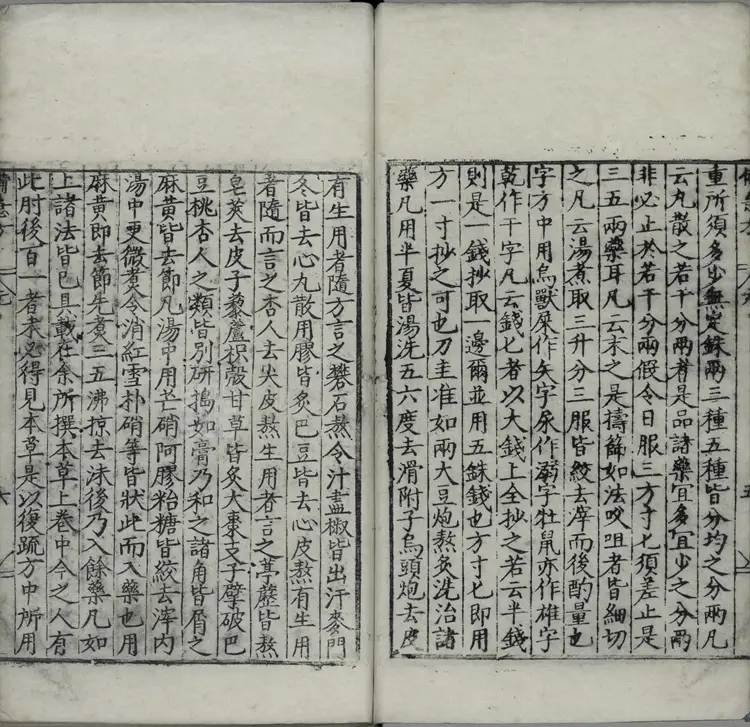 重所須多少無定銖兩三種五種皆分均之分兩凡
云丸散之若干分兩者是品諸藥宜多宜少之分兩
非必止於若干分兩假令日服三方寸匕須差止是
三五兩藥耳凡云末之是擣篩如法㕮咀者皆細切
之凡云湯煮取三升分三服皆絞去滓而後酌量也
字方中用鳥獸屎作矢字尿作溺字牡鼠亦作雄字
乾作干字凡云錢匕者以大錢上全抄之若云半錢
則是一錢抄取一邊爾並用五銖錢也方寸匕即用
方一寸抄之可也刀圭准如兩大豆炮熬炙洗治諸
藥凡用半夏皆湯洗五六度去滑附子烏頭炮去皮
有生用者隨方言之礬石熬令汁盡椒皆出汗麥門
冬皆去心丸散用膠皆炙巴豆皆去心皮熬有生用
者隨而言之杏人去尖皮熬生用者言之葶藶皆熬
皂莢去皮子藜蘆枳殼甘草皆炙大棗支子擘破巴
豆桃杏人之類皆別研搗如膏乃和之諸角皆屑之
麻黃皆去節凡湯中用芒硝阿膠粘糖皆絞去滓內
湯中更微煮令消紅雪朴硝等皆狀此而入藥也用
麻黃即去節先煮三五沸掠去沫後乃入餘藥凡如
上諸法皆已具載在余所撰本草上卷中今之人有
此肘後百一者未必得見本草是以復疏方中所用